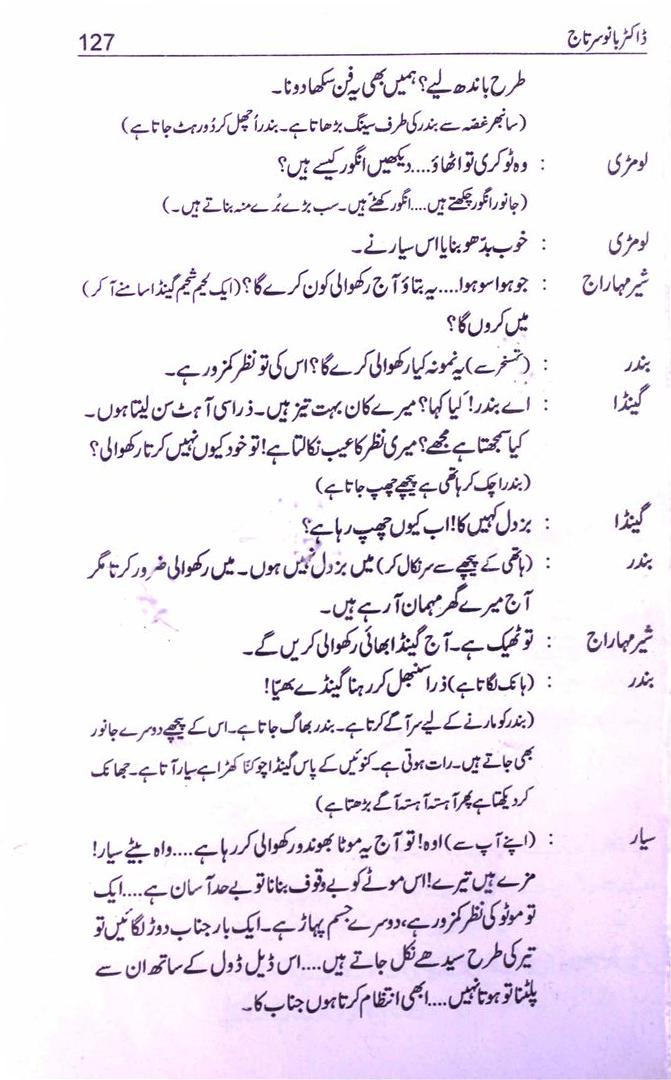 ڈاکٹر بانو سرتاج 127
طرح باندھ لیے؟ ہمیں بھی یہ فن سکھا دونا۔
(سانبھر غصّہ سے بندر کی طرف سینگ بڑھاتا ہے۔ بندر اُچھل کر دُور ہٹ جاتا ہے)
لومڑی : وہ ٹوکری تو اٹھاؤ.... دیکھیں انگور کیسے ہیں؟
(جانور انگور چکھتے ہیں.... انگور کھٹّے ہیں۔ سب بڑے بُرے منہ بناتے ہیں۔)
لومڑی : خوب بدّھو بنایا اس سیار نے۔
شیر مہاراج : جو ہوا سو ہوا.... یہ بتاؤ آج رکھوالی کون کرے گا؟ (ایک لحیم شحیم گینڈا سامنے آ کر)
میں کروں گا؟
بندر : (تمسخر سے) یہ نمونہ کیا رکھوالی کرے گا؟ اس کی تو نظر کمزور ہے۔
گینڈا : اے بندر! کیا کہا؟ میرے کان بہت تیز ہیں۔ ذرا سی آہٹ سن لیتا ہوں۔
کیا سمجھتا ہے مجھے؟ میری نظر کا عیب نکالتا ہے! تو خود کیوں نہیں کرتا رکھوالی؟
(بندر اچک کر ہاتھی ہے پیچھے چھپ جاتا ہے)
گینڈا : بزدل کہیں کا! اب کیوں چھپ رہا ہے؟
بندر : (ہاتھی کے پیچھے سے سر نکال کر) میں بزدل نہیں ہوں۔ میں رکھوالی ضرور کرتا مگر
آج میرے گھر مہمان آ رہے ہیں۔
شیر مہاراج : تو ٹھیک ہے۔ آج گینڈا بھائی رکھوالی کریں گے۔
بندر : (ہانک لگاتا ہے) ذرا سنبھل کر رہنا گینڈے بھیّا!
(بندر کو مارنے کے لیے سر آگے کرتا ہے۔ بندر بھاگ جاتا ہے۔ اس کے پیچھے دوسرے جانور
بھی جاتے ہیں۔ رات ہوتی ہے۔ کنوئیں کے پاس گینڈا چوکنّا کھڑا ہے سیار آتا ہے۔ جھانک
کر دیکھتا ہے پھر آہستہ آہستہ آگے بڑھتا ہے)
سیار : (اپنے آپ سے) اوہ! تو آج یہ موٹا بھوندو رکھوالی کر رہا ہے.... واہ بیٹے سیار!
مزے ہیں تیرے! اس موٹے کو بے وقوف بنانا تو بے حد آسان ہے.... ایک
تو موٹو کی نظر کمزور ہے، دوسرے جسم پہاڑ ہے۔ ایک بار جناب دوڑ لگائیں تو
تیر کی طرح سیدھے نکل جاتے ہیں.... اس ڈیل ڈول کے ساتھ ان سے
پلٹنا تو ہوتا نہیں.... ابھی انتظام کرتا ہوں جناب کا۔